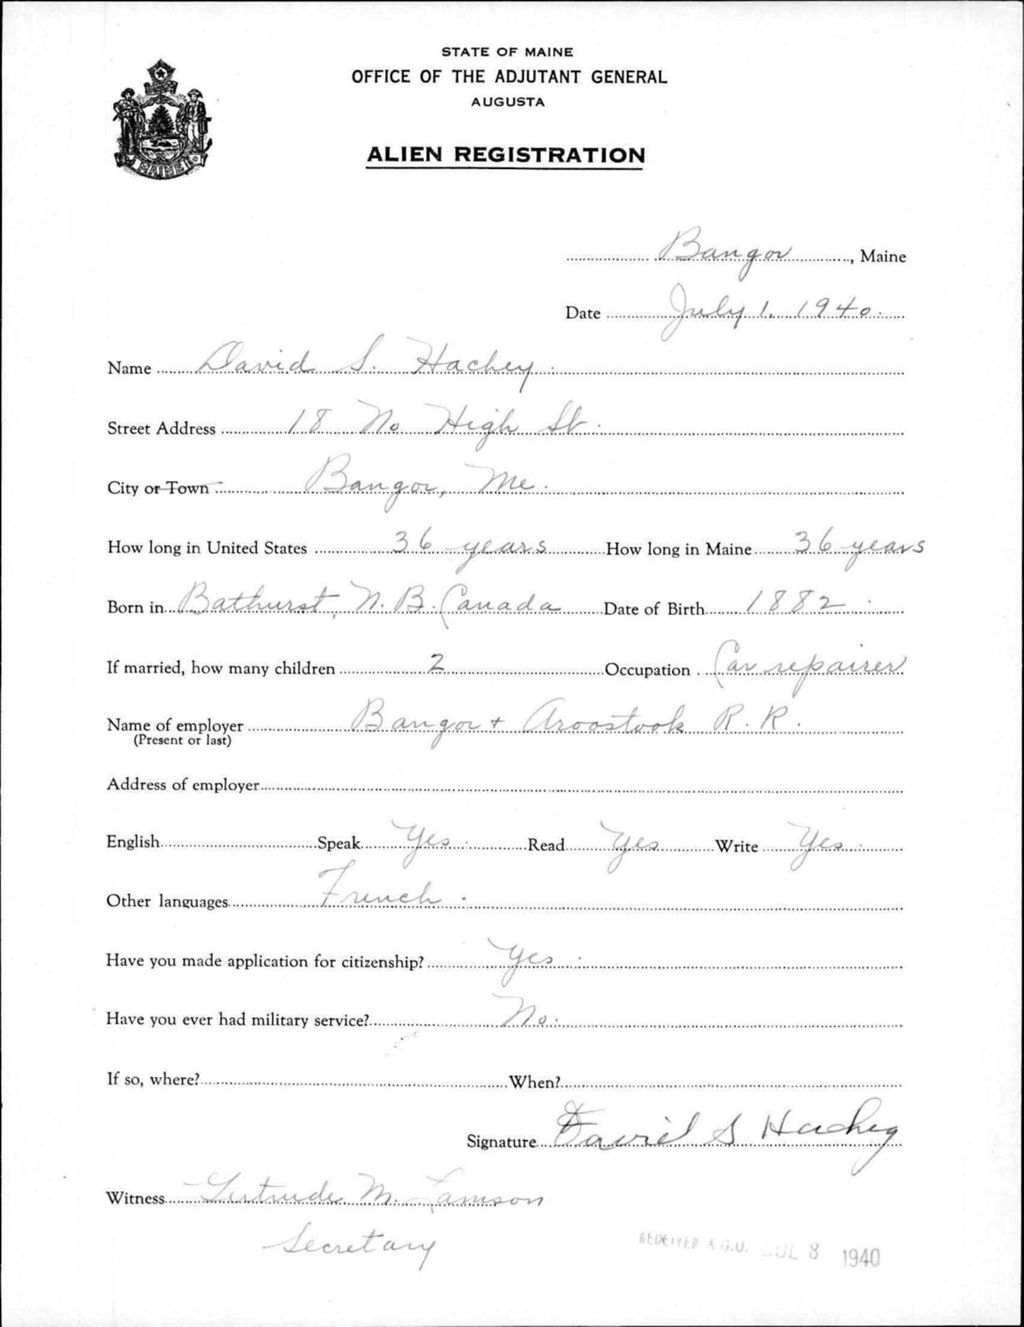 STATE OF MAINE
OFFICE OF THE ADJUTANT GENERAL
AUGUSTA
ALIEN REGISTRATION
MAINE
Bangor, Maine
Date July 1, 1940.
Name David S. Hachey.
Street Address 18 No High St.
City or Town Bangor, Me.
How long in United States 36 years How long in Maine 36 years
Born in Bathurst, N. B. Canada Date of Birth 1882.
If married, how many children 2 Occupation Car repairer
Name of employer Bangor + Aroostook R. R.
(Present or last)
Address of employer
English Speak Yes. Read Yes Write Yes.
Other languages French.
Have you made application for citizenship? Yes.
Have you ever had military service? No.
If so, where? When?
Signature David S Hachey
Witness Gertrude M. Lamson
Secretary
RECEIVED A.G.O. JUL 8 1940